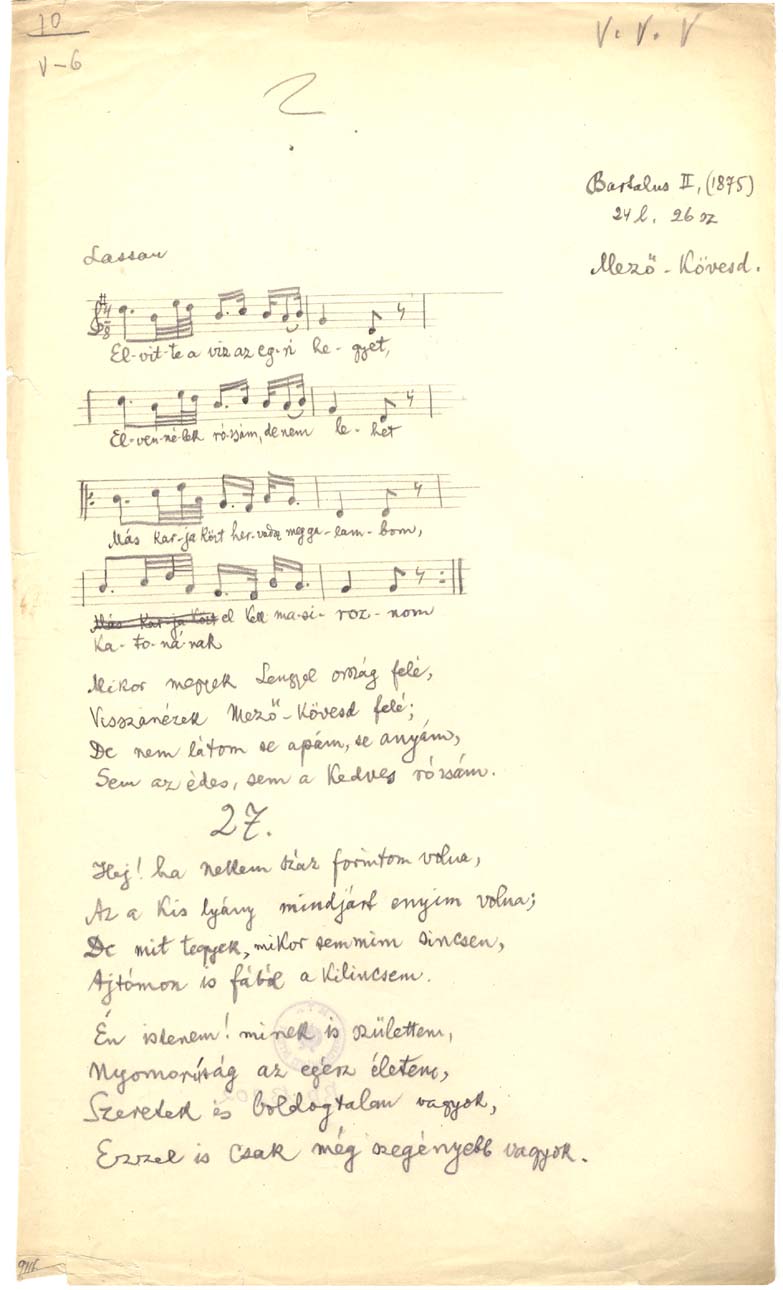 10
V-6
V. V. V
2
Bartalus II, (1875)
24 l. 26 sz
Mező-Kövesd.
Lassan
4
8
El-vit-te a viz az eg-ri he-gyet,
El-ven-né-lek ró-zsám, de nem le-het
Más kar-ja köit her-vadsz meg ga-lam-bom,
Más Kar-ja Köit el kell ma-si-roz-nom
Ka-to-ná-nak
Mikor megyek Lengyel ország felé,
Visszanézek Mező-Kövesd felé;
De nem látom se apám, se anyám,
Sem az édes, sem a Kedves rózsám.
27.
Hej! ha nekem száz forintom volna,
Az a kis lyány mindjárt enyim volna;
De mit tegyek, mikor semmim sincsen,
Ajtómon is fából a Kilincsem.
Én istenem! minek is születtem,
Nyomorúság az egész életem,
Szeretek és boldogtalan vagyok,
Ezzel is csak még szegényebb vagyok.